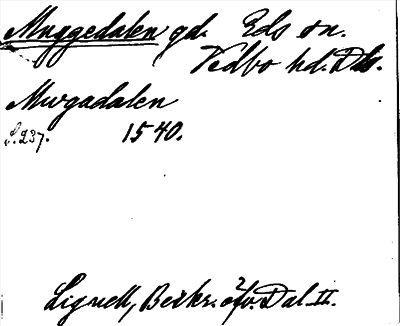 Muggedalen gd. Eds sn.
Vedbo hd. Dls.
Murgadalen
s. 237. 1540.
Lignell, Beskr. öfv. Dal II.